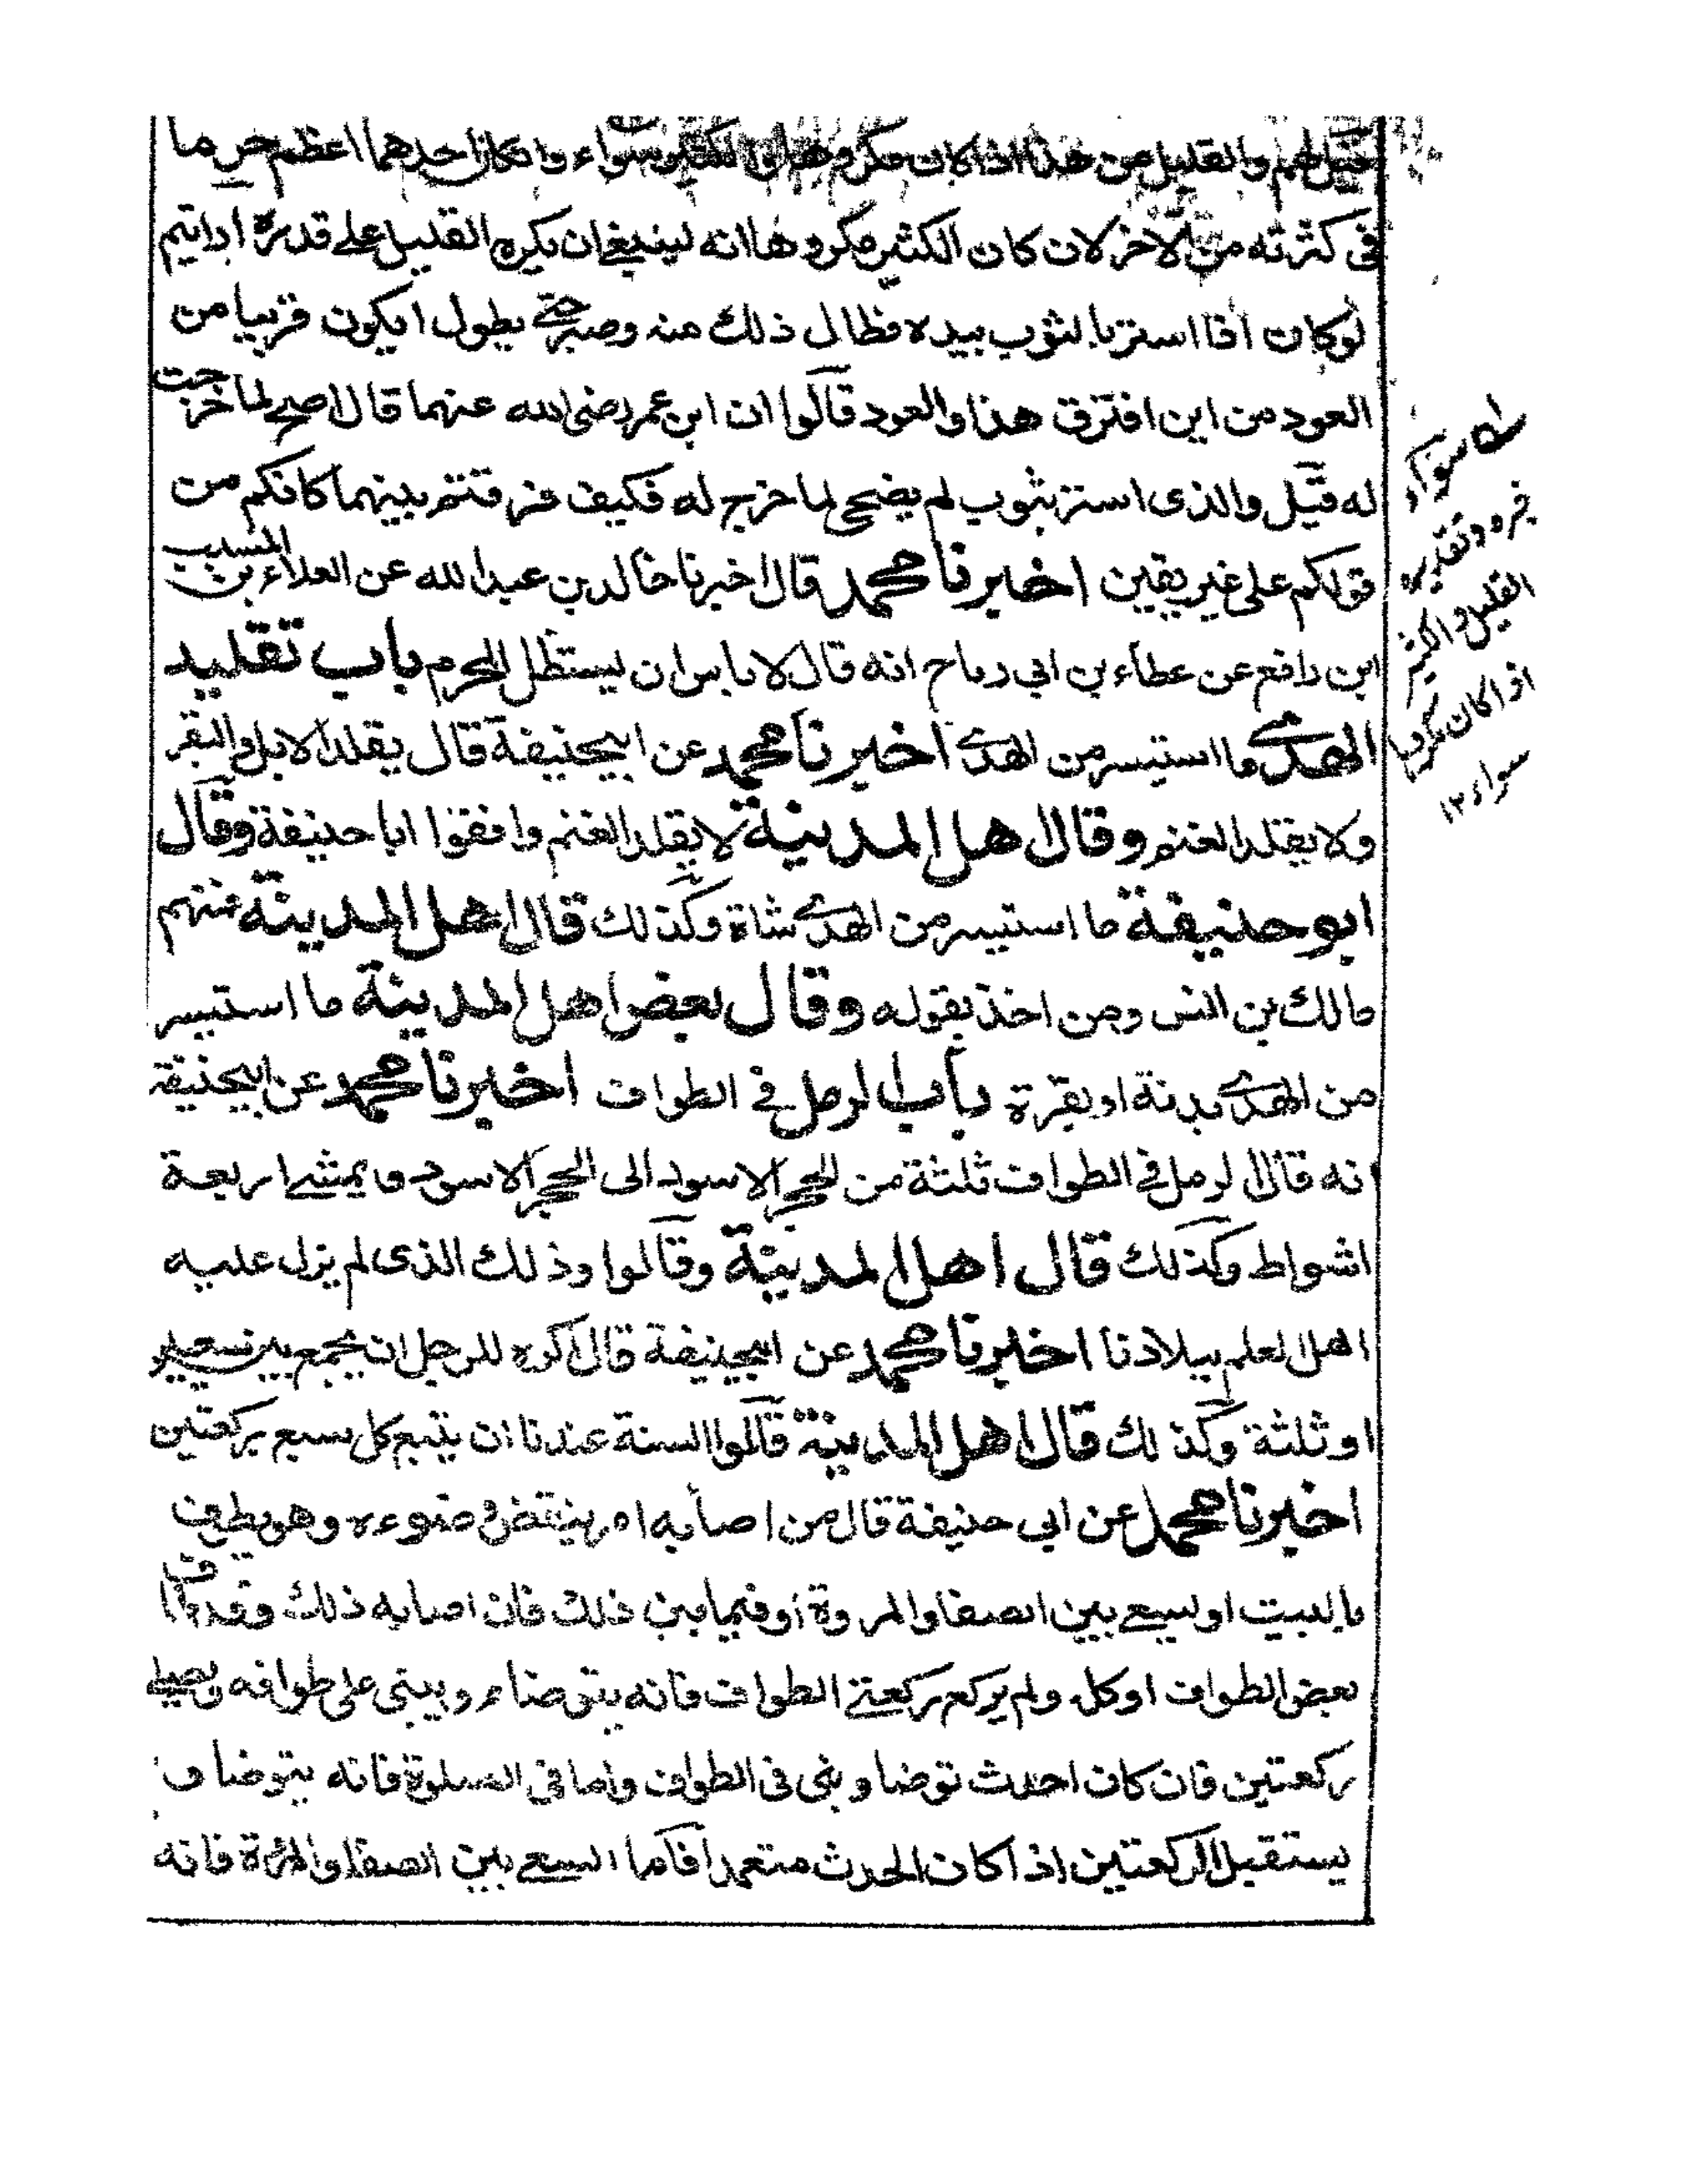 قيل لهم والقليل من هذا اذا كان مكروها والكثير سواء وان كان احدهما اعظم جرما
فى كثرته من الاخر لان كان الكثير مكروها انه لينبغى ان يكره القليل على قدره ارايتم
لو كان اذا استتر بالثوب بيده فطال ذلك منه وصبر حتى يطول ايكون قريبا من
العود من اين افترق هذا والعود قالوا ان ابن عمر رضى الله عنهما قال اضح لما خرجت
له قيل والذى استتر بثوب لم يضحى لما خرج له فكيف فرقتم بينهما كانكم من
قولكم على غير يقين اخبرنا محمد قال اخبرنا خالد بن عبد الله عن العلاء بن المسيب
ابن رافع عن عطاء بن ابي رباح انه قال لا باس ان يستظل المحرم باب تقليد
الهدى ما استيسر من الهدى اخبرنا محمد عن ابيحنيفة قال يقلد الابل والبقر
ولا يقلد الغنم وقال اهل المدينة لا يقلد الغنم وافقوا ابا حنيفة وقال
ابو حنيفة ما استيسر من الهدى شاة وكذلك قال اهل المدينة منهم
مالك بن انس ومن اخذ بقوله وقال بعض اهل المدينة ما استيسر
من الهدى بدنة او بقرة باب الرمل فى الطواف اخبرنا محمد عن ابيحنيفة
انه قال الرمل فى الطواف ثلثة من الحجر الاسود الى الحجر الاسود ويمشى اربعة
اشواط وكذلك قال اهل المدينة وقالوا وذلك الذى لم يزل عليه
اهل العلم ببلادنا اخبرنا محمد عن ابيحنيفة قال اكره للرجل ان يجمع بين سبعين
او ثلثة وكذلك قال اهل المدينة قالوا السنة عندنا ان يتبع كل سبع بركعتين
اخبرنا محمد عن ابي حنيفة قال من اصابه امر ينتقض وضوءه وهو يطوف
بالبيت او يسعى بين الصفا والمروة او فيما بين ذلك فان اصابه ذلك وقد طاف
بعض الطواف او كله ولم يركع ركعتى الطواف فانه يتوضا ويبنى على طوافه ويصلى
ركعتين فان كان احدث توضا وبنى فى الطواف واما فى الصلوة فانه يتوضا و
يستقبل الركعتين اذا كان الحدث متعمدا فاما السعى بين الصفا والمروة فانه
سواء
القليل والكثير
اذا كان مكروها
سواء ١٢